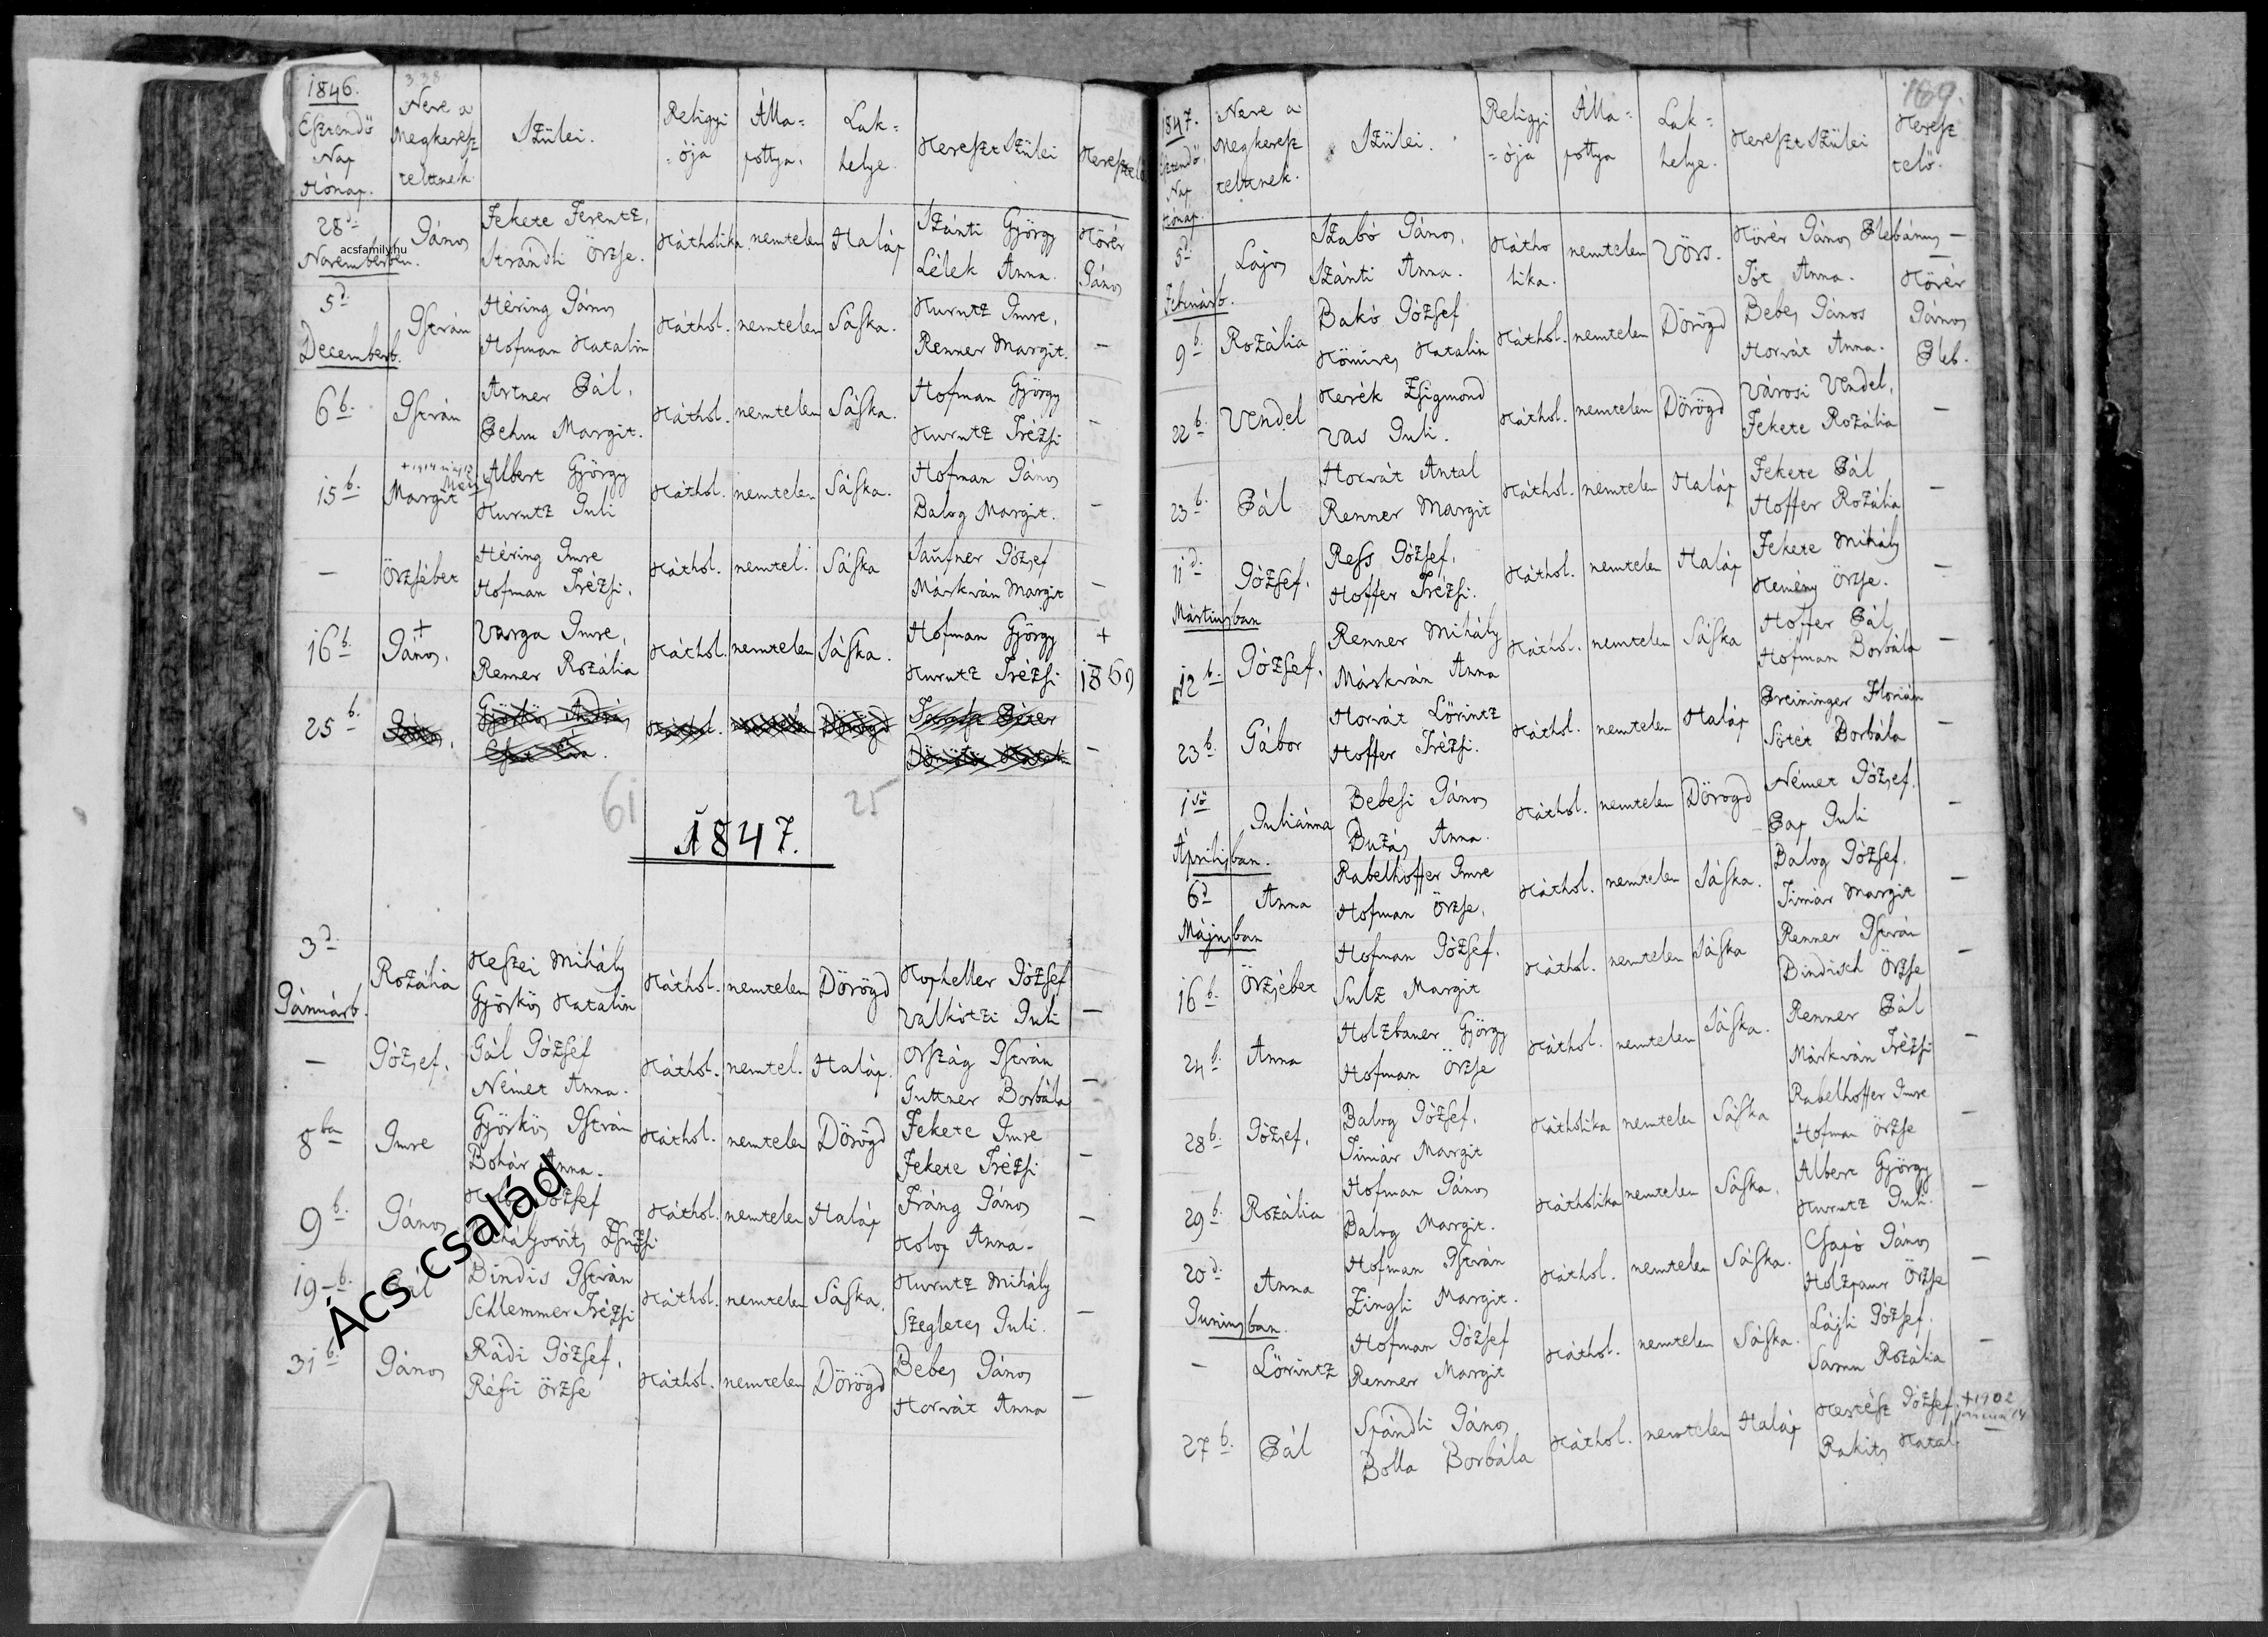 1846.
338
Esztendő
Nap
Hónap.
Neve a
Megkeresz
teltnek.
Szülei.
Religyi
=ója
Álla=
pottya.
Lak=
helye.
Kereszt Szülei
Keresztelő
28d.
Novemberben.
János
Fekete Ferentz,
Strándli Örzse.
Kátholika
nemtelen
Haláp
Szánti György
Lélek Anna.
Hörér
János
acsfamily.hu
5d.
Decemberb.
István
Héring János
Hofman Katalin
Káthol.
nemtelen
Sáska.
Kurutz Imre,
Renner Margit.
—
6b.
István
Artner Pál,
Pehm Margit.
Káthol.
nemtelen
Sáska.
Hofman György
Kurutz Trézsi
—
15b.
Margit
Albert György
Kurutz Juli
Káthol.
nemtelen
Sáska.
Hofman János
Balog Margit.
—
—
Örzsébet
Héring Imre
Hofman Trézsi.
Káthol.
nemtel.
Sáska
József
Márkván Margit
—
16b.
+
János.
Varga Imre,
Renner Rozália
Káthol.
nemtelen
Sáska.
Hofman György
Kurutz Trézsi
+
1869
25b.
János.
Györkös András
Éva.
Káthol.
nemtelen
Dörögd
Péter
—
61
25
1847.
3d.
Január b.
Rozália
Keszei Mihály
Györkös Katalin
Káthol.
nemtelen
Dörögd
Kopheller József
Valkótzi Juli
—
—
József.
Gál József
Német Anna.
Káthol.
nemtel.
Haláp.
Ország István
Guttner Borbála
—
8ban
Imre
Györkös István
Bohár Anna.
Káthol.
nemtelen
Dörögd
Fekete Imre
Fekete Trézsi
—
9b.
János
József
Zsuzsi
Káthol.
nemtelen
Haláp
Fráng János
Kolop Anna.
—
19b.
Pál
Bindis István
Schlemmer Trézsi
Káthol.
nemtelen
Sáska.
Kurutz Mihály
Szegletes Juli.
—
31b.
János
Rádi József,
Réfi Örzse
Káthol.
nemtelen
Dörögd
Bebes János
Horvát Anna
—
Ács család
169.
1847.
Esztendő,
Nap
Hónap.
Neve a
Megkeresz
teltnek.
Szülei.
Religyi
=ója
Álla=
pottya
Lak=
helye.
Kereszt Szülei
Keresz
telő.
5d.
Februárb.
Lajos
Szabó János,
Szánti Anna.
Kátho
lika.
nemtelen
Vörs.
Hörér János Plebánus —
Tót Anna.
Hörér
János
Pleb.
9b.
Rozália
Bakó József
Kömives Katalin
Káthol.
nemtelen
Dörögd
Bebes János
Horvát Anna.
22b.
Vendel
Kerék Zsigmond
Vas Juli.
Káthol.
nemtelen
Dörögd
Városi Vendel,
Fekete Rozália
—
23b.
Pál
Horvát Antal
Renner Margit
Káthol.
nemtelen
Haláp
Fekete Pál
Hoffer Rozália
—
11d.
Mártiusban
József.
Ress József,
Hoffer Trézsi.
Káthol.
nemtelen
Haláp
Fekete Mihály
Kemény Örzse.
—
12b.
József.
Renner Mihály
Márkván Anna
Káthol.
nemtelen
Sáska
Hoffer Pál
Hofman Borbála
—
23b.
Gábor
Horvát Lörintz
Hoffer Trézsi.
Káthol.
nemtelen
Haláp
Preininger Flórián
Sötét Borbála
—
1ső
Áprilisban.
Juliánna
Bebesi János
Buzás Anna.
Káthol.
nemtelen
Dörögd
Német József.
Pap Juli
—
6d
Májusban
Anna
Rabelhoffer Imre
Hofman Örzse.
Káthol.
nemtelen
Sáska.
Balog József.
Timár Margit
—
16b.
Örzsébet
Hofman József.
Sulz Margit
Káthol.
nemtelen
Sáska
Renner István
Bindisch Örzse
—
24b.
Anna
Holzbauer György
Hofman Örzse
Káthol.
nemtelen
Sáska.
Renner Pál
Márkván Trézsi
—
28b.
József.
Balog József.
Timár Margit
Kátholika
nemtelen
Sáska
Rabelhoffer Imre
Hofman Örzse
—
29b.
Rozália
Hofman János
Balog Margit.
Kátholika
nemtelen
Sáska.
Albert György
Kurutz Juli.
—
20d.
Juniusban.
Anna
Hofman István
Zingli Margit.
Káthol.
nemtelen
Sáska.
Csapó János
Holzpaur Örzse
—
—
Lörintz
Hofman József
Renner Margit
Káthol.
nemtelen
Sáska.
Lájli József.
Samu Rozália
—
27b.
Pál
Spándli János
Bolla Borbála
Káthol.
nemtelen
Haláp
Kertész József.
Rakits Katal.
+1902
—